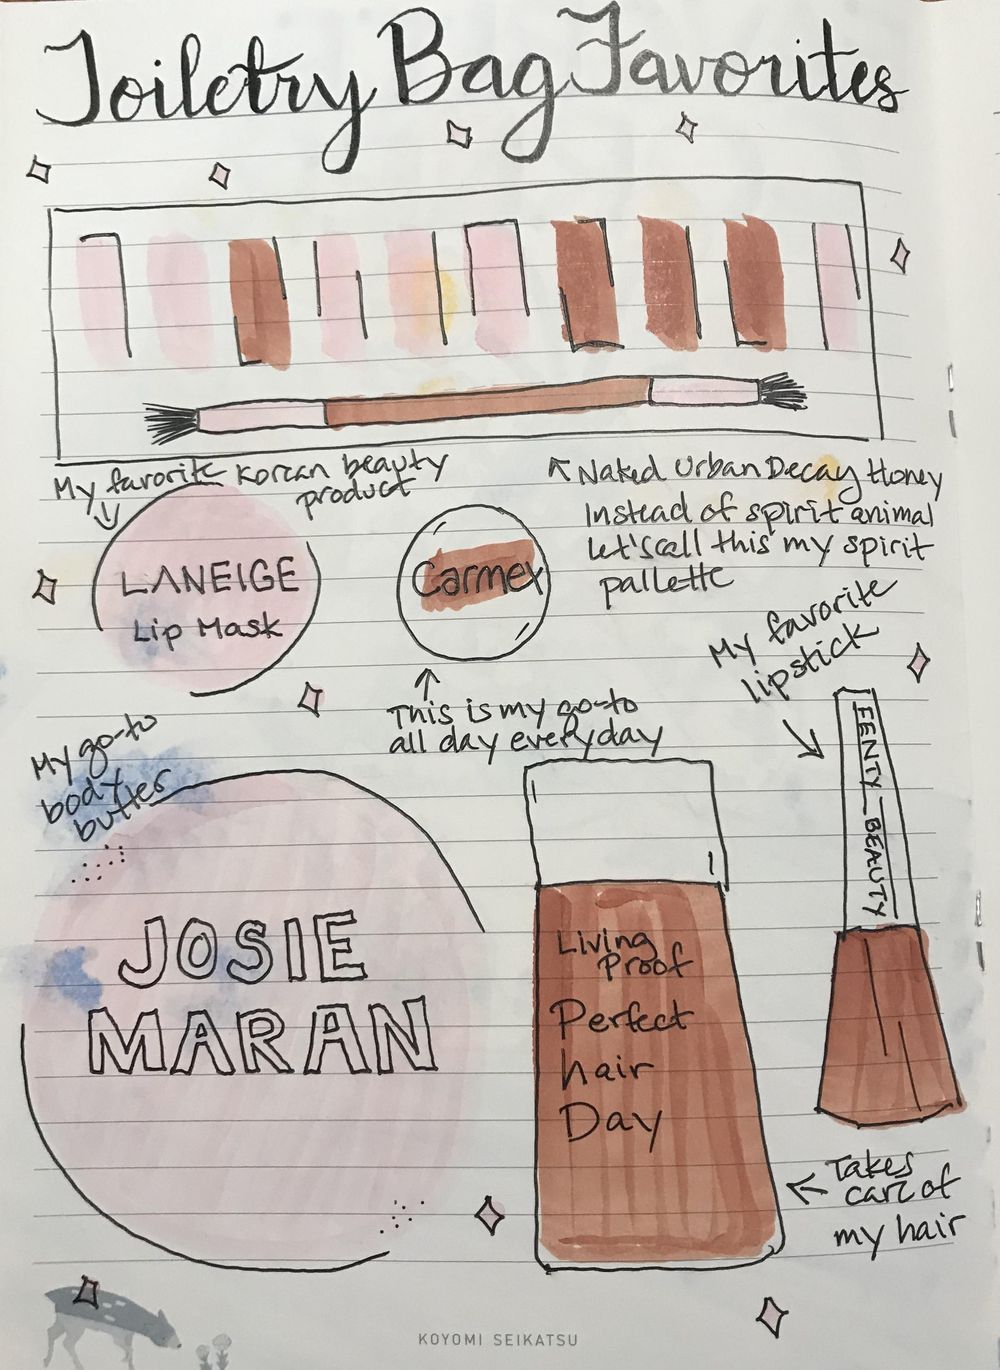 Toiletry Bag Favorites
My favorite Korean beauty
product
Naked Urban Decay Honey
Instead of spirit animal
let's call this my spirit
pallette
LANEIGE
Lip Mask
Carmex
This is my go-to
all day everyday
My favorite
lipstick
FENTY BEAUTY
My go-to
body
butter
JOSIE
MARAN
Living
Proof
Perfect
hair
Day
Takes
care of
my hair
KOYOMI SEIKATSU